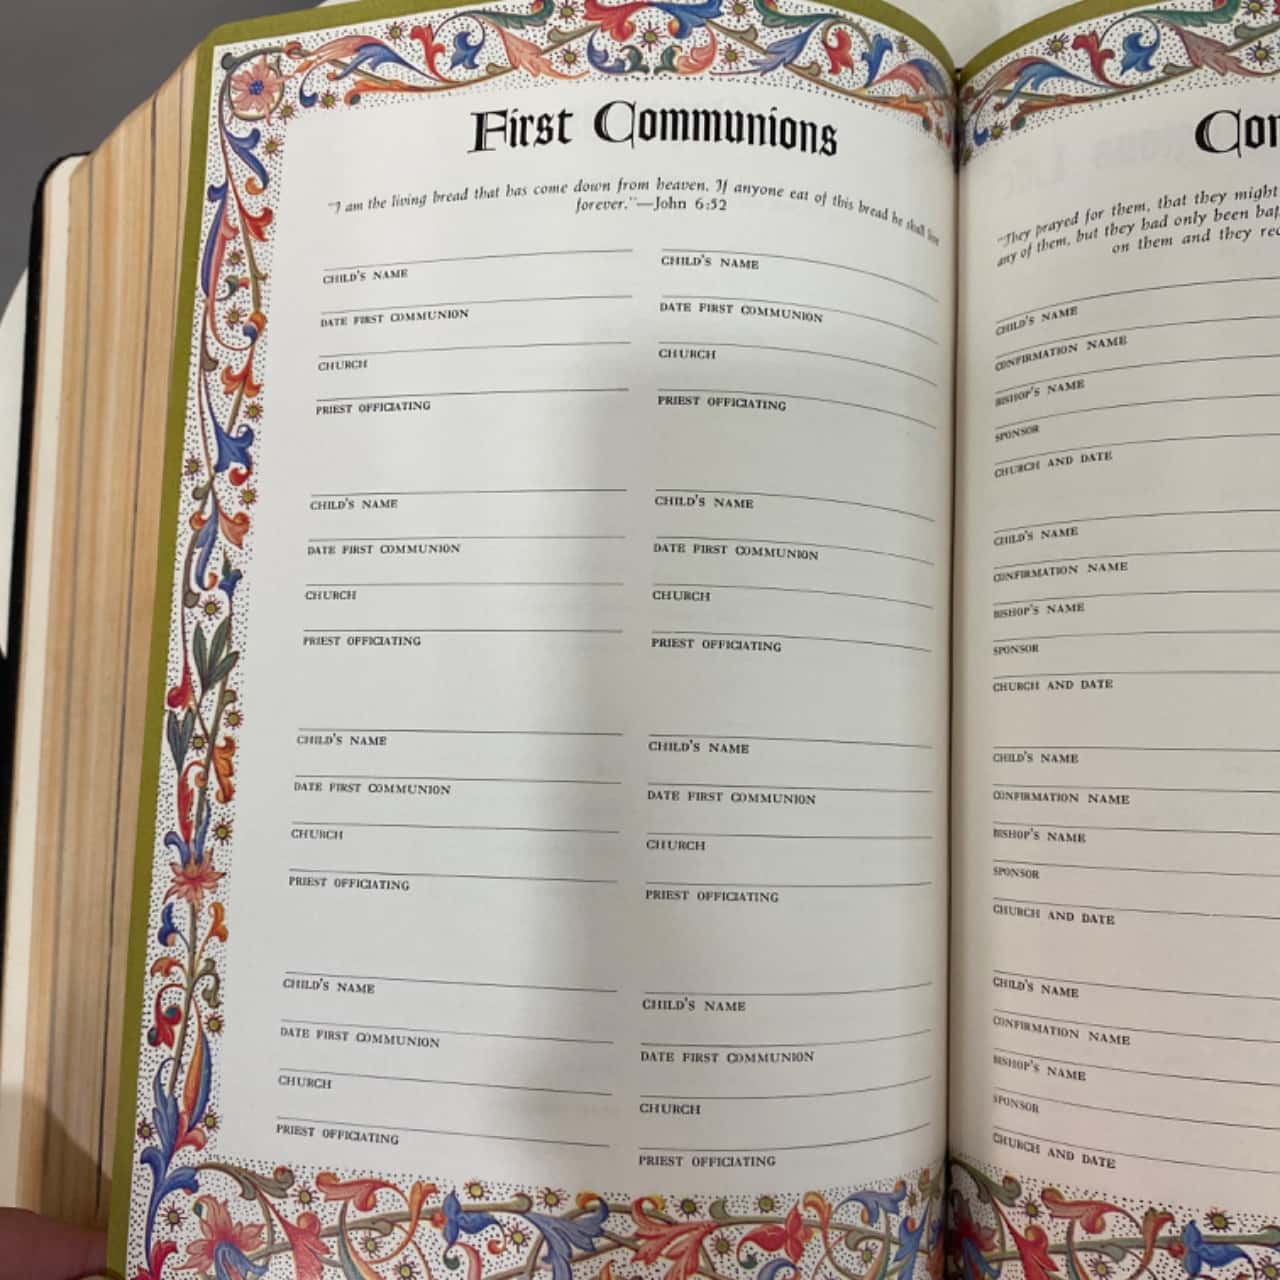 First Communions
"I am the living bread that has come down from heaven. If anyone eat of this bread he shall live
forever."—John 6:52
CHILD'S NAME
DATE FIRST COMMUNION
CHURCH
PRIEST OFFICIATING
CHILD'S NAME
DATE FIRST COMMUNION
CHURCH
PRIEST OFFICIATING
CHILD'S NAME
DATE FIRST COMMUNION
CHURCH
PRIEST OFFICIATING
CHILD'S NAME
DATE FIRST COMMUNION
CHURCH
PRIEST OFFICIATING
CHILD'S NAME
DATE FIRST COMMUNION
CHURCH
PRIEST OFFICIATING
CHILD'S NAME
DATE FIRST COMMUNION
CHURCH
PRIEST OFFICIATING
CHILD'S NAME
DATE FIRST COMMUNION
CHURCH
PRIEST OFFICIATING
CHILD'S NAME
DATE FIRST COMMUNION
CHURCH
PRIEST OFFICIATING
Con
"They prayed for them, that they might
any of them, but they had only been bap
on them and they rec
CHILD'S NAME
CONFIRMATION NAME
BISHOP'S NAME
SPONSOR
CHURCH AND DATE
CHILD'S NAME
CONFIRMATION NAME
BISHOP'S NAME
SPONSOR
CHURCH AND DATE
CHILD'S NAME
CONFIRMATION NAME
BISHOP'S NAME
SPONSOR
CHURCH AND DATE
CHILD'S NAME
CONFIRMATION NAME
BISHOP'S NAME
SPONSOR
CHURCH AND DATE